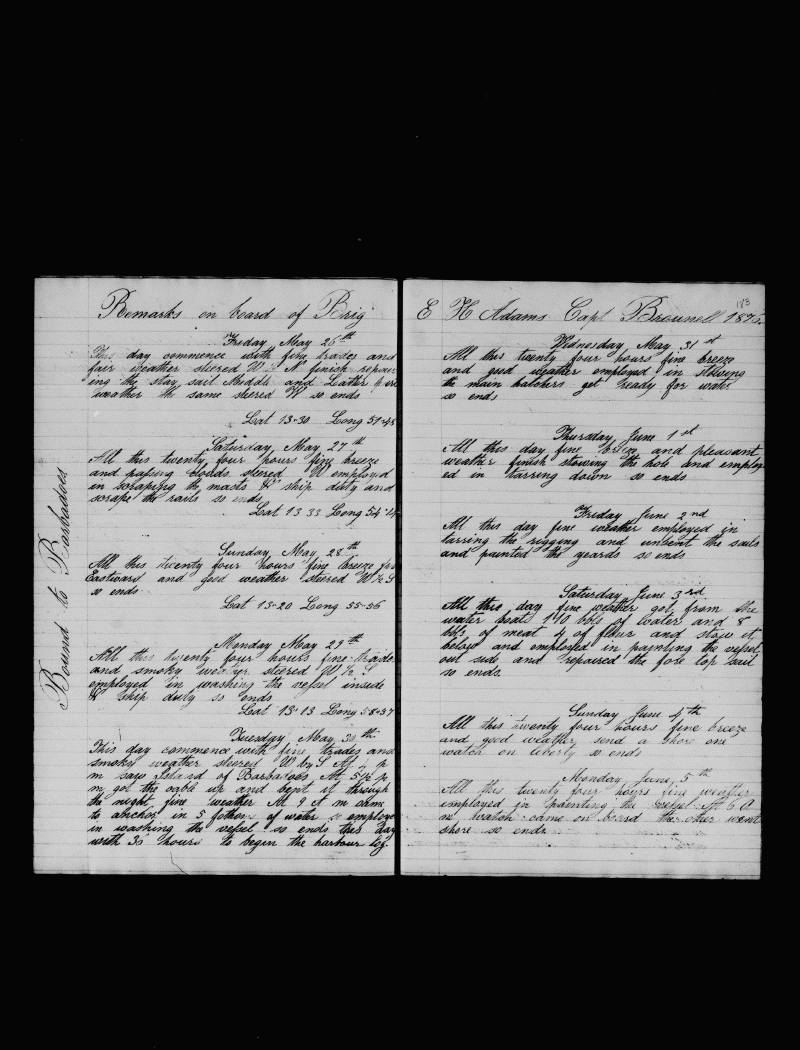 Remarks on board of Brig
Friday May 26th
This day commence with fine trades and
fair weather steered W N finish repair
ing the stay sail Middle and Leather
weather the same steered W so ends
Lat 13-30 Long 51-45
Saturday May 27th
All this twenty four hours fine breeze
and passing clouds steered W employed
in scraping the masts & ship duty and
scrape the rails so ends
Lat 13 33 Long 54
Sunday May 28th
All this twenty four hours fine breeze
Eastward and good weather steered W ½ S
so ends
Lat 13-20 Long 55-56
Monday May 29th
All this twenty four hours fine trades
and smoky weather steered W ½ S
employed in washing the vessel inside
& ship duty so ends
Lat 13-13 Long 58-37
Tuesday May 30th
This day commence with fine trades and
smoky weather steered W by S At p
m saw Island of Barbadoes At 5½ p
m got the cable up and bent it through
the night fine weather At 9 A m came
to anchor in 5 fathom of water & employe
in washing the vessel so ends this day
with 30 hours to begin the harbour log.
Bound to Barbadoes
183
E H Adams Capt Brownell 1876
Wednesday May 31st
All this twenty four hours fine breeze
and good weather employed in stowing
the main hatchers get ready for water
so ends
Thursday June 1st
All this day fine breeze and pleasant
weather finish stowing the hole and employ
ed in tarring down so ends
Friday June 2nd
All this day fine weather employed in
tarring the rigging and unbent the sails
and painted the yeards so ends
Saturday June 3rd
All this day fine weather got from the
water boats 110 bbls of water and 8
bbls of meat 4 of flour and stow it
below and employed in painting the vessel
out side and repaired the fore top sail
so ends.
Sunday June 4th
All this twenty four hours fine breeze
and good weather send a shore one
watch on liberty so ends
Monday June 5th
All this twenty four hours fine weather
employed in painting the vessel At 6 A
m watch came on board the other went
shore so ends